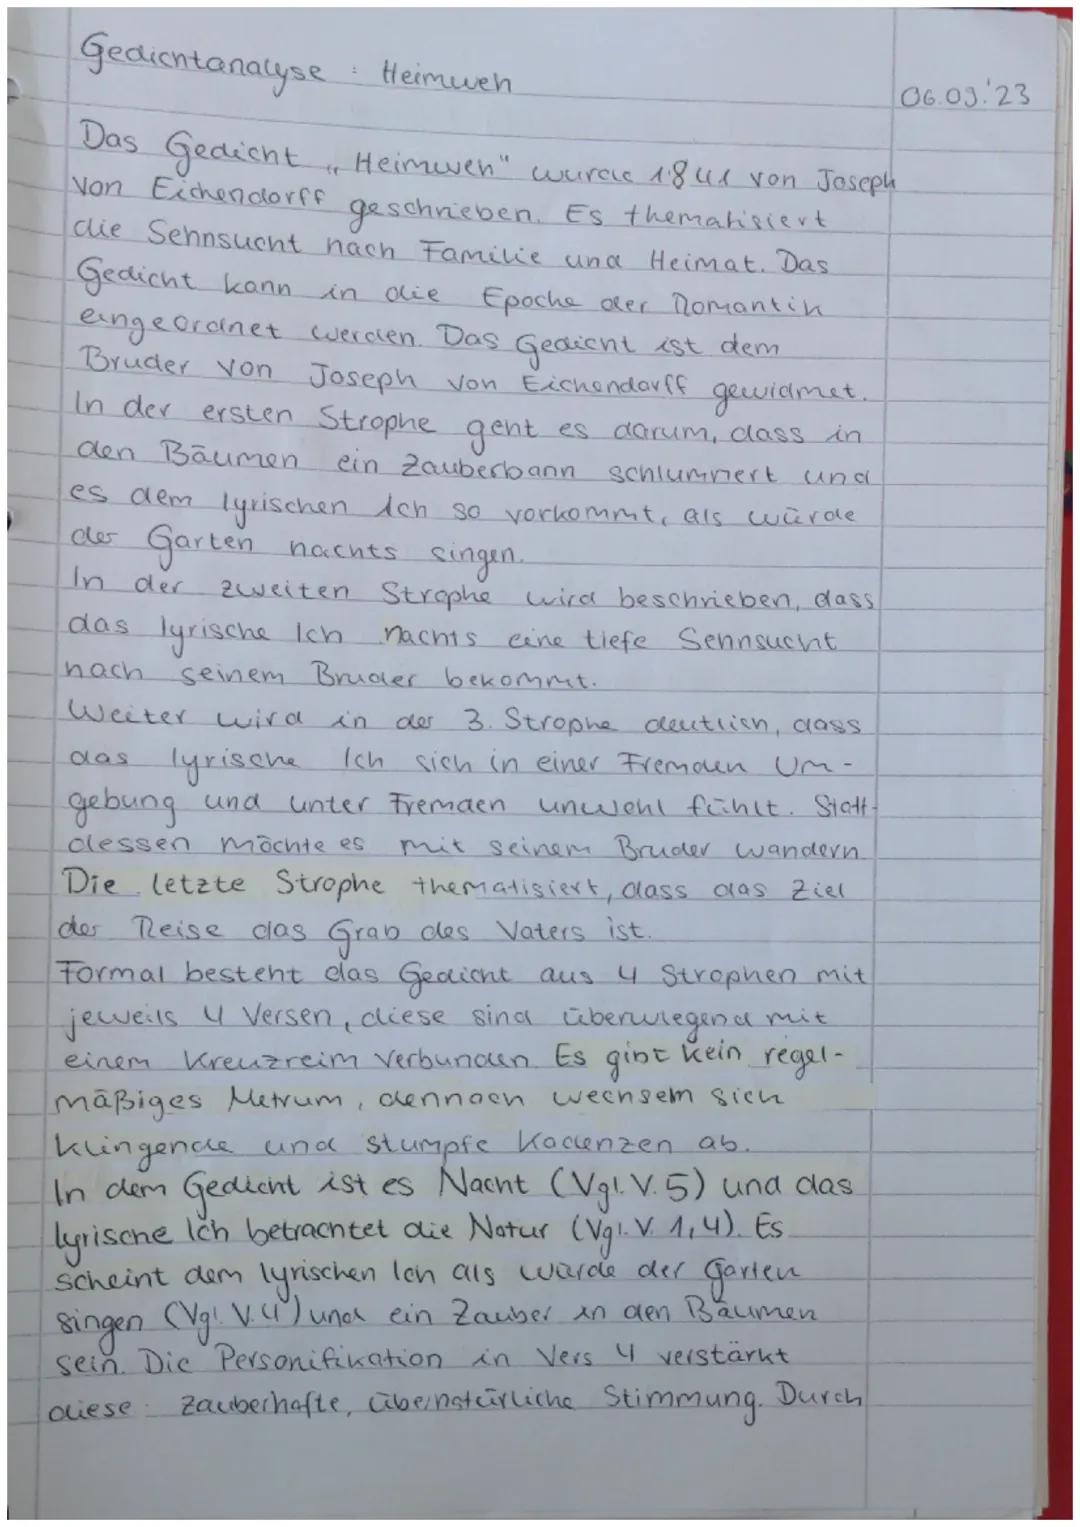 Gedichtanalyse : Heimweh
06.09.'23
Das Gedicht „Heimweh" wurde 1841 von Joseph
von Eichendorff geschrieben. Es thematisiert
die Sehnsucht nach Familie und Heimat. Das
Gedicht kann in die Epoche der Romantik
eingeordnet werden. Das Gedicht ist dem
Bruder von Joseph von Eichendorff gewidmet.
In der ersten Strophe geht es darum, dass in
den Bäumen ein Zauberbann schlummert und
es dem lyrischen Ich so vorkommt, als würde
der Garten nachts singen.
In der zweiten Strophe wird beschrieben, dass
das lyrische Ich nachts eine tiefe Sehnsucht
nach seinem Bruder bekommt.
Weiter wird in der 3. Strophe deutlich, dass
das lyrische Ich sich in einer Fremden Um-
gebung und unter Fremden unwohl fühlt. Statt-
dessen möchte es mit seinem Bruder wandern.
Die letzte Strophe thematisiert, dass das Ziel
der Reise das Grab des Vaters ist.
Formal besteht das Gedicht aus 4 Strophen mit
jeweils 4 Versen, diese sind überwiegend mit
einem Kreuzreim verbunden. Es gibt kein regel-
mäßiges Metrum, dennoch wechseln sich
klingende und stumpfe Kadenzen ab.
In dem Gedicht ist es Nacht (Vgl. V. 5) und das
lyrische Ich betrachtet die Natur (Vgl. V. 1,4). Es
scheint dem lyrischen Ich als würde der Garten
singen (Vgl. V.4) und ein Zauber in den Bäumen
sein. Die Personifikation in Vers 4 verstärkt
diese zauberhafte, übernatürliche Stimmung. Durch